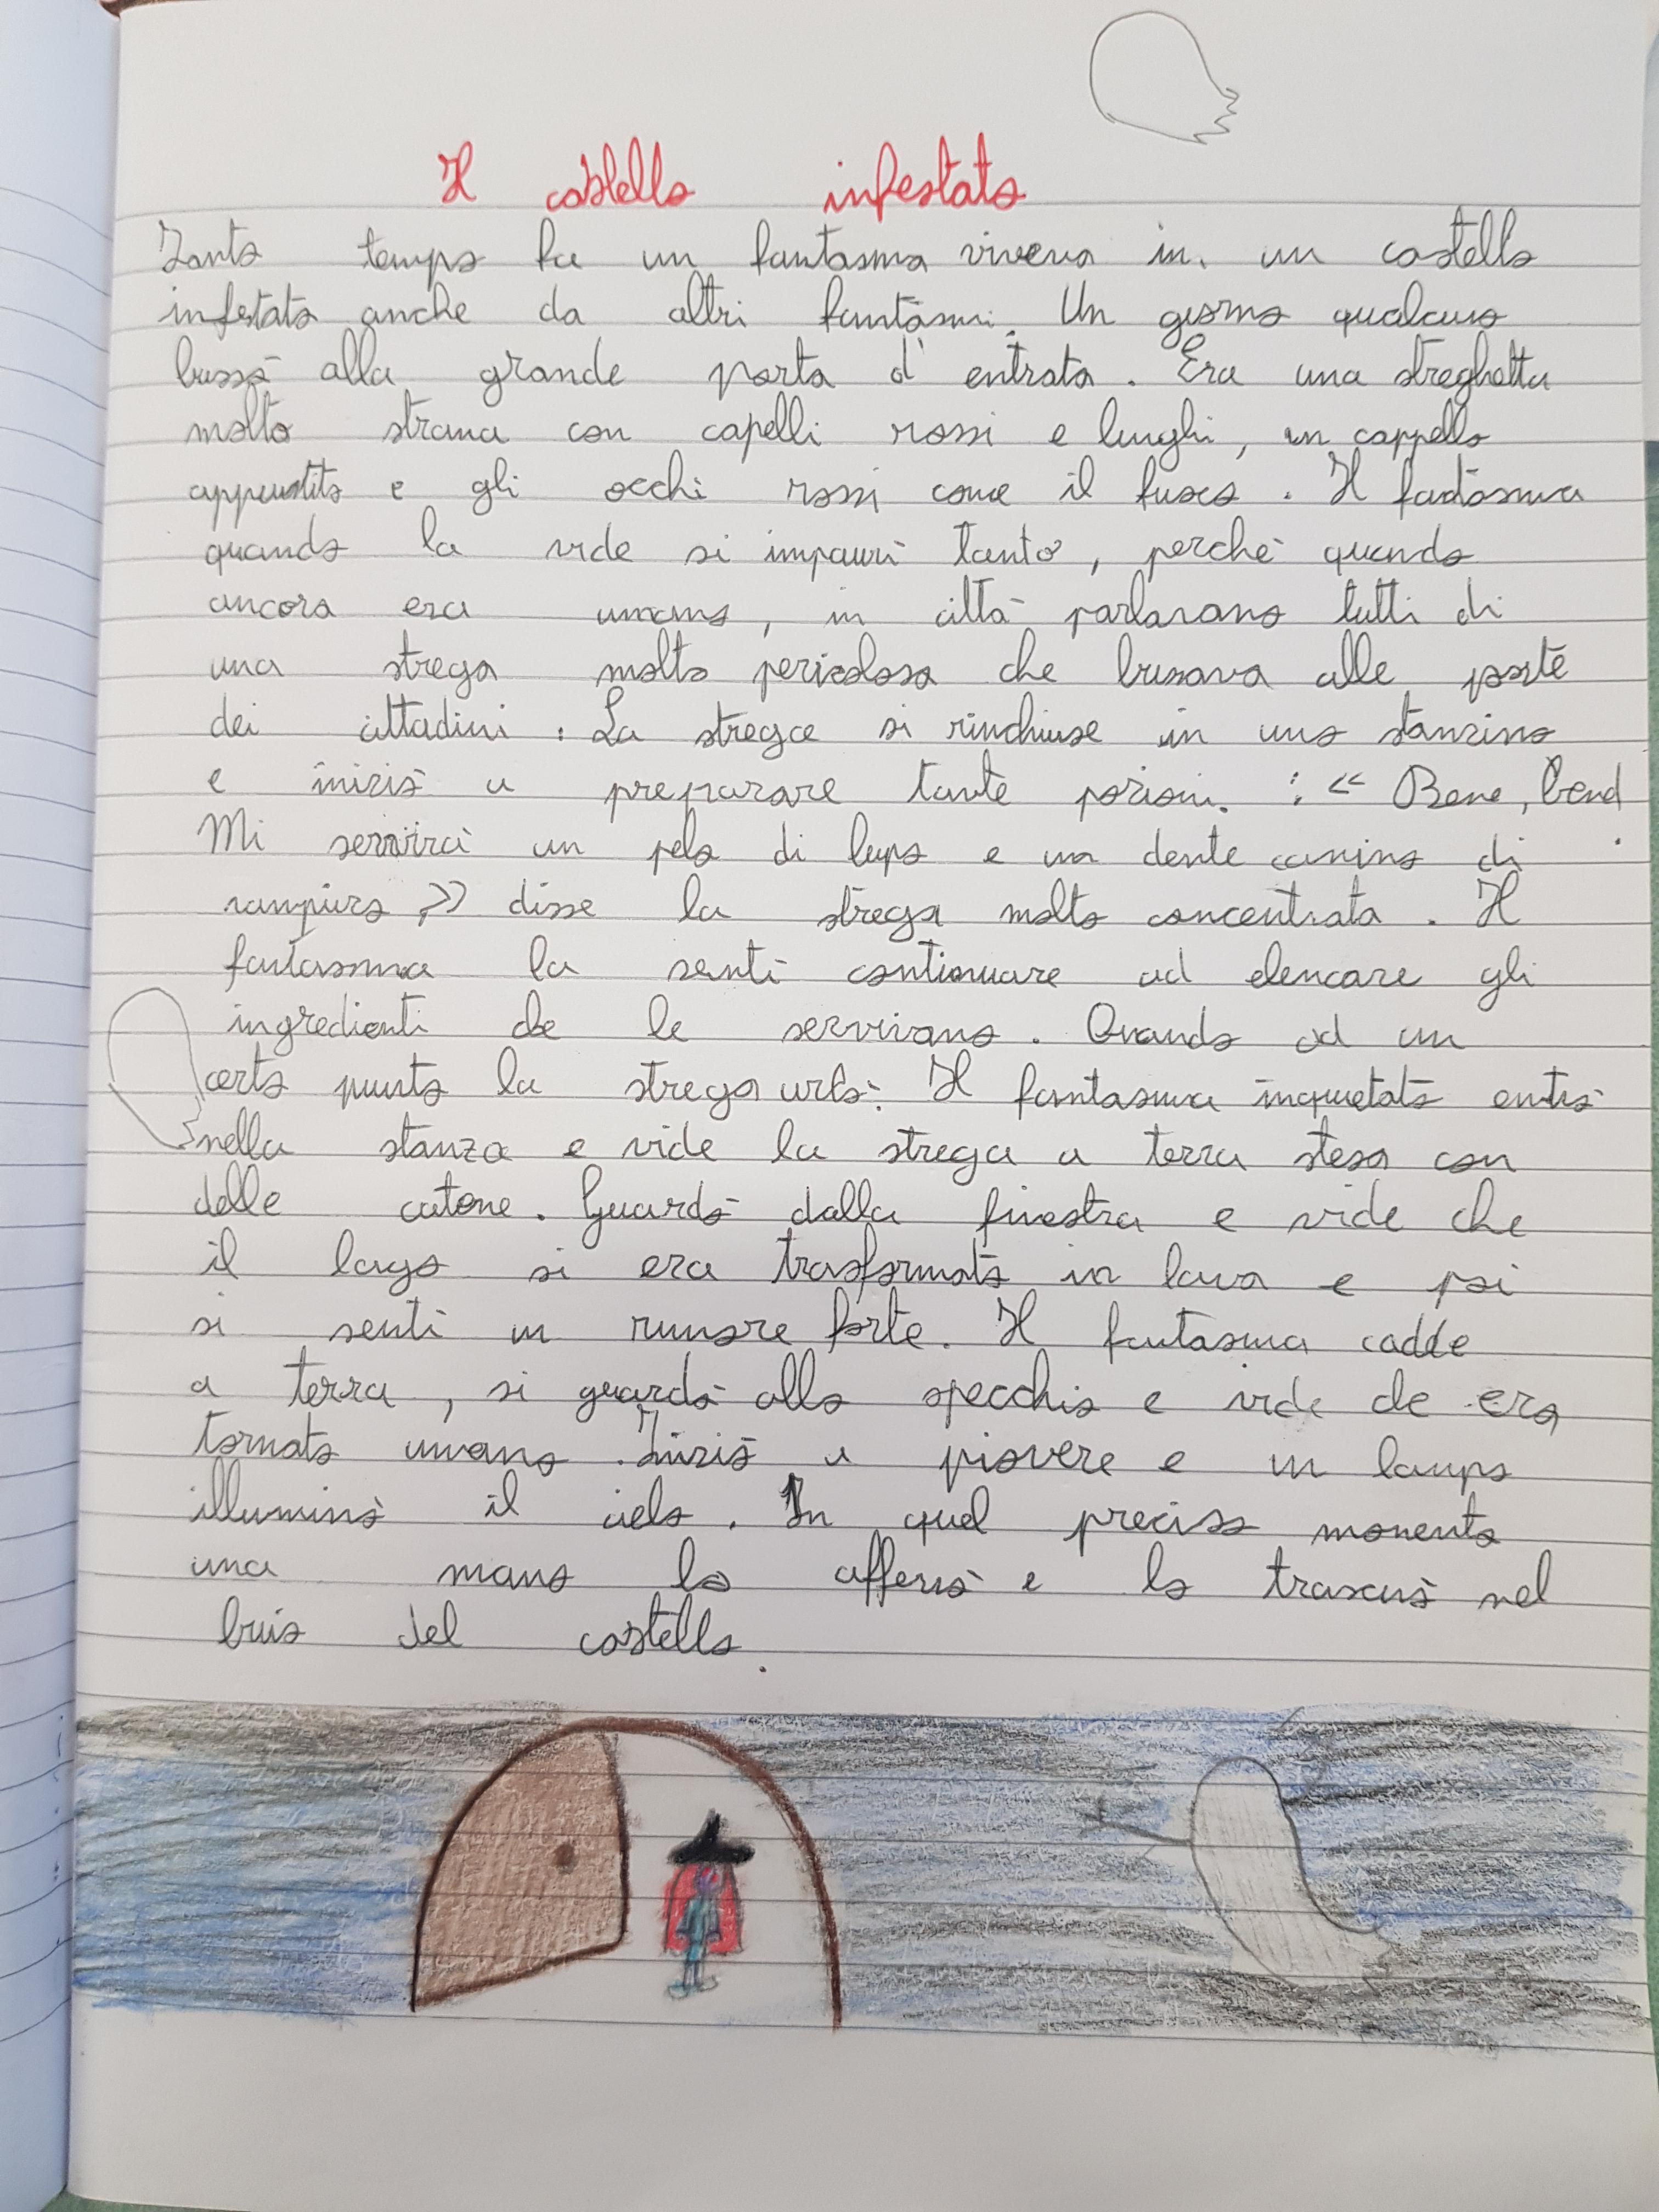 Il castello infestato
Tanto tempo fa un fantasma viveva in un castello
infestato anche da altri fantasmi. Un giorno qualcuno
bussò alla grande porta d'entrata. Era una streghetta
molto strana con capelli rossi e lunghi, un cappello
appuntito e gli occhi rossi come il fuoco. Il fantasma
quando la vide si impaurì tanto, perchè quando
ancora era umano, in città parlavano tutti di
una strega molto pericolosa che bussava alle porte
dei cittadini. La strega si rinchiuse in uno stanzino
e iniziò a preparare tante pozioni. : << Bene, bene
Mi servirà un pelo di lupo e un dente canino di
vampiro >> disse la strega molto concentrata. Il
fantasma la sentì continuare ad elencare gli
ingredienti che le servivano. Quando ad un
certo punto la strega urlò. Il fantasma inquietato entrò
nella stanza e vide la strega a terra stesa con
delle catene. Guardò dalla finestra e vide che
il lago si era trasformato in lava e poi
si sentì un rumore forte. Il fantasma cadde
a terra, si guardò allo specchio e vide che era
tornato umano. Iniziò a piovere e un lampo
illuminò il cielo. In quel preciso momento
una mano lo afferrò e lo trascinò nel
buio del castello.